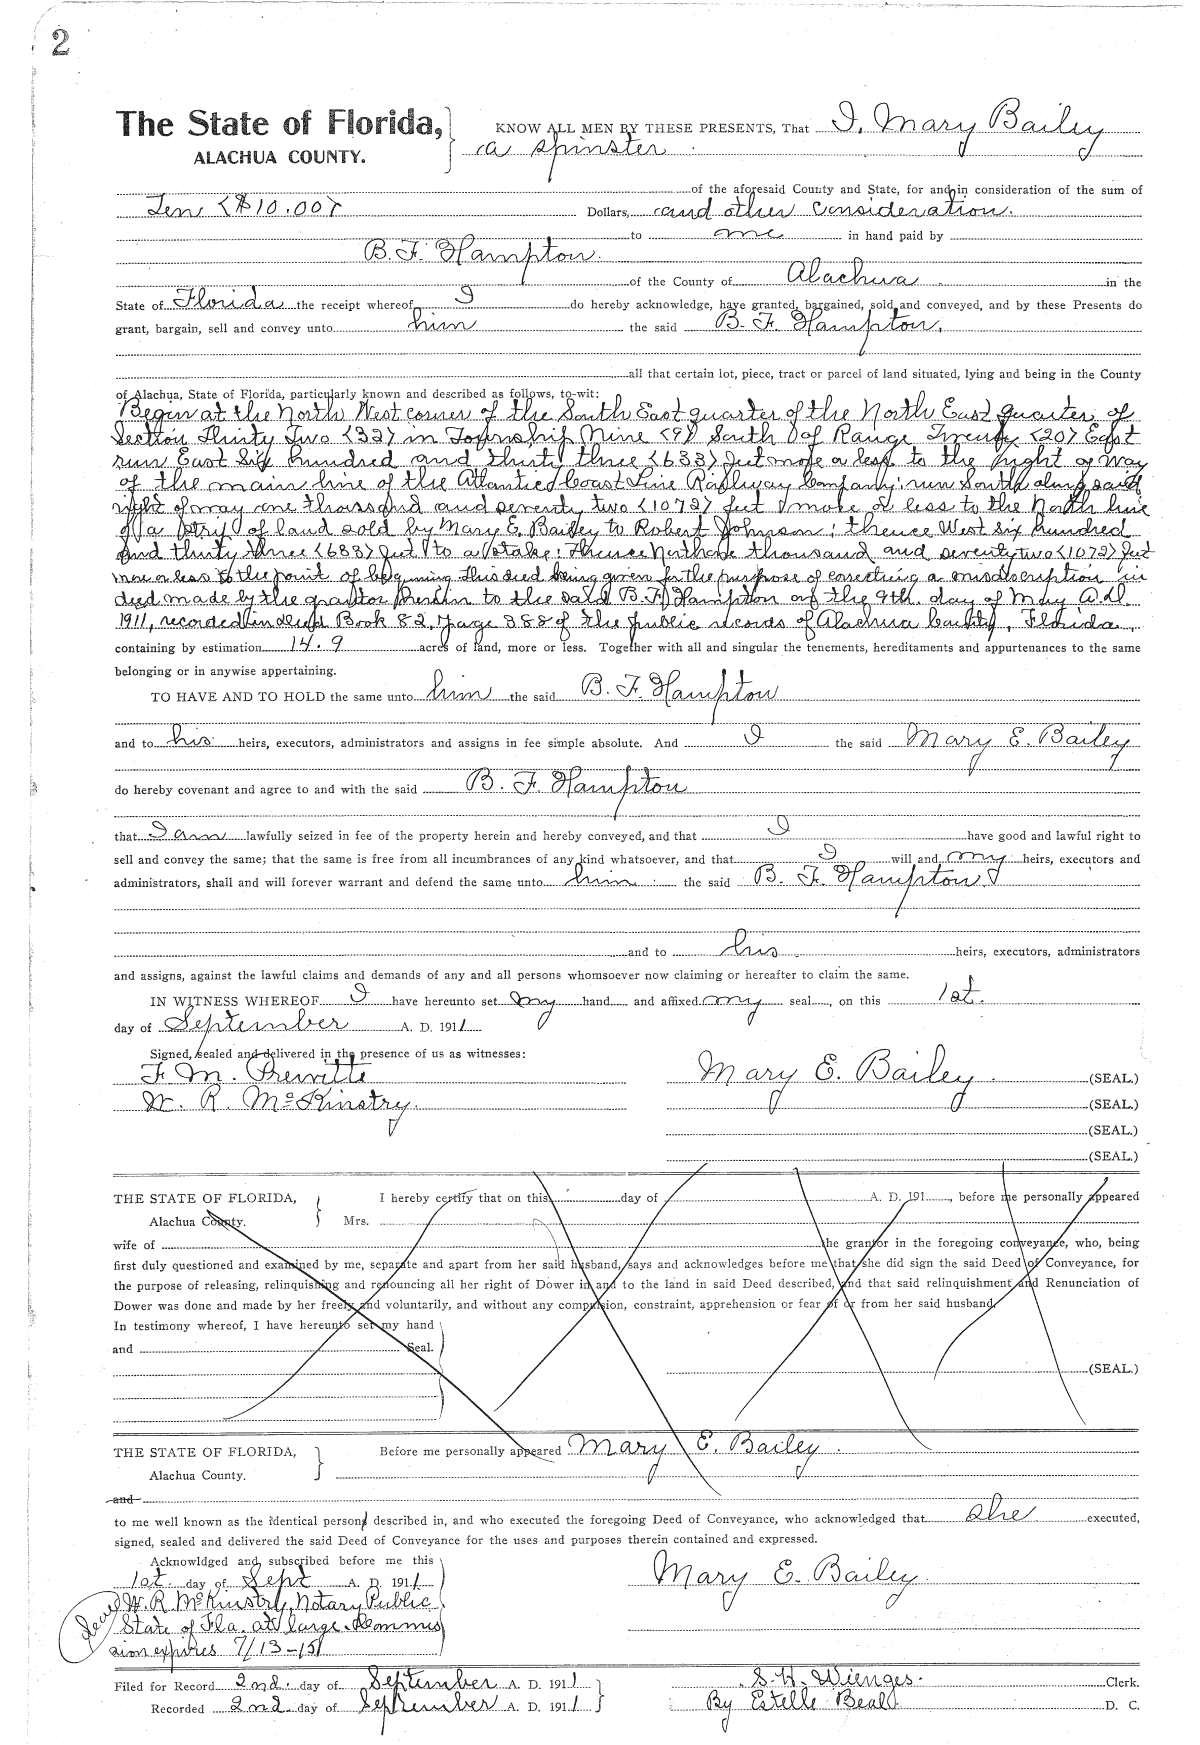 2
The State of Florida, KNOW ALL MEN BY THESE PRESENTS, That I, Mary Bailey
ALACHUA COUNTY. a spinster
of the aforesaid County and State, for and in consideration of the sum of
Ten ($10.00) Dollars, and other consideration.
to me in hand paid by
B. F. Hampton.
of the County of Alachua in the
State of Florida the receipt whereof I do hereby acknowledge, have granted, bargained, sold and conveyed, and by these Presents do
grant, bargain, sell and convey unto him the said B. F. Hampton,
all that certain lot, piece, tract or parcel of land situated, lying and being in the County
of Alachua, State of Florida, particularly known and described as follows, to-wit:
Begin at the North West corner of the South East quarter of the North East quarter of
Section Thirty Two (32) in Township Nine (9) South of Range Twenty (20) East
run East Six hundred and thirty three (633) feet more or less to the right of way
of the main line of the Atlantic Coast Line Railway Company; run South along said
right of way one thousand and seventy two (1072) feet more or less to the North line
of a strip of land sold by Mary E. Bailey to Robert Johnson; thence West Six hundred
and thirty three (633) feet to a stake; thence North one thousand and seventy two (1072) feet
more or less to the point of beginning this deed being given for the purpose of correcting a misdiscription in
deed made by the grantor herein to the said B. F. Hampton on the 9th. day of May A.D.
1911, recorded in deed Book 82, page 388 of the public records of Alachua County, Florida,
containing by estimation 14.9 acres of land, more or less. Together with all and singular the tenements, hereditaments and appurtenances to the same
belonging or in anywise appertaining.
TO HAVE AND TO HOLD the same unto him the said B. F. Hampton
and to his heirs, executors, administrators and assigns in fee simple absolute. And I the said Mary E. Bailey
do hereby covenant and agree to and with the said B. F. Hampton
that I am lawfully seized in fee of the property herein and hereby conveyed, and that I have good and lawful right to
sell and convey the same; that the same is free from all incumbrances of any kind whatsoever, and that I will and my heirs, executors and
administrators, shall and will forever warrant and defend the same unto him the said B. F. Hampton
and to his heirs, executors, administrators
and assigns, against the lawful claims and demands of any and all persons whomsoever now claiming or hereafter to claim the same.
IN WITNESS WHEREOF I have hereunto set my hand and affixed my seal, on this 1st.
day of September A. D. 1911
Signed, sealed and delivered in the presence of us as witnesses:
F. M. Prewitte Mary E. Bailey (SEAL.)
W. R. McKinstry. (SEAL.)
(SEAL.)
(SEAL.)
THE STATE OF FLORIDA, I hereby certify that on this day of A. D. 191 , before me personally appeared
Alachua County. Mrs.
wife of the grantor in the foregoing conveyance, who, being
first duly questioned and examined by me, separate and apart from her said husband, says and acknowledges before me that she did sign the said Deed of Conveyance, for
the purpose of releasing, relinquishing and renouncing all her right of Dower in and to the land in said Deed described, and that said relinquishment and Renunciation of
Dower was done and made by her freely and voluntarily, and without any compulsion, constraint, apprehension or fear of or from her said husband.
In testimony whereof, I have hereunto set my hand
and Seal.
(SEAL.)
THE STATE OF FLORIDA, Before me personally appeared Mary E. Bailey
Alachua County.
and
to me well known as the identical person described in, and who executed the foregoing Deed of Conveyance, who acknowledged that she executed,
signed, sealed and delivered the said Deed of Conveyance for the uses and purposes therein contained and expressed.
Acknowldged and subscribed before me this
1st day of Sept A. D. 1911 Mary E. Bailey
Seal W. R. McKinstry, Notary Public
State of Fla. at large. Commis
sion expires 7/13-15
Filed for Record 2nd. day of September A. D. 1911 S. H. Wienges. Clerk.
Recorded 2nd. day of September A. D. 1911 By Estelle Beald D. C.